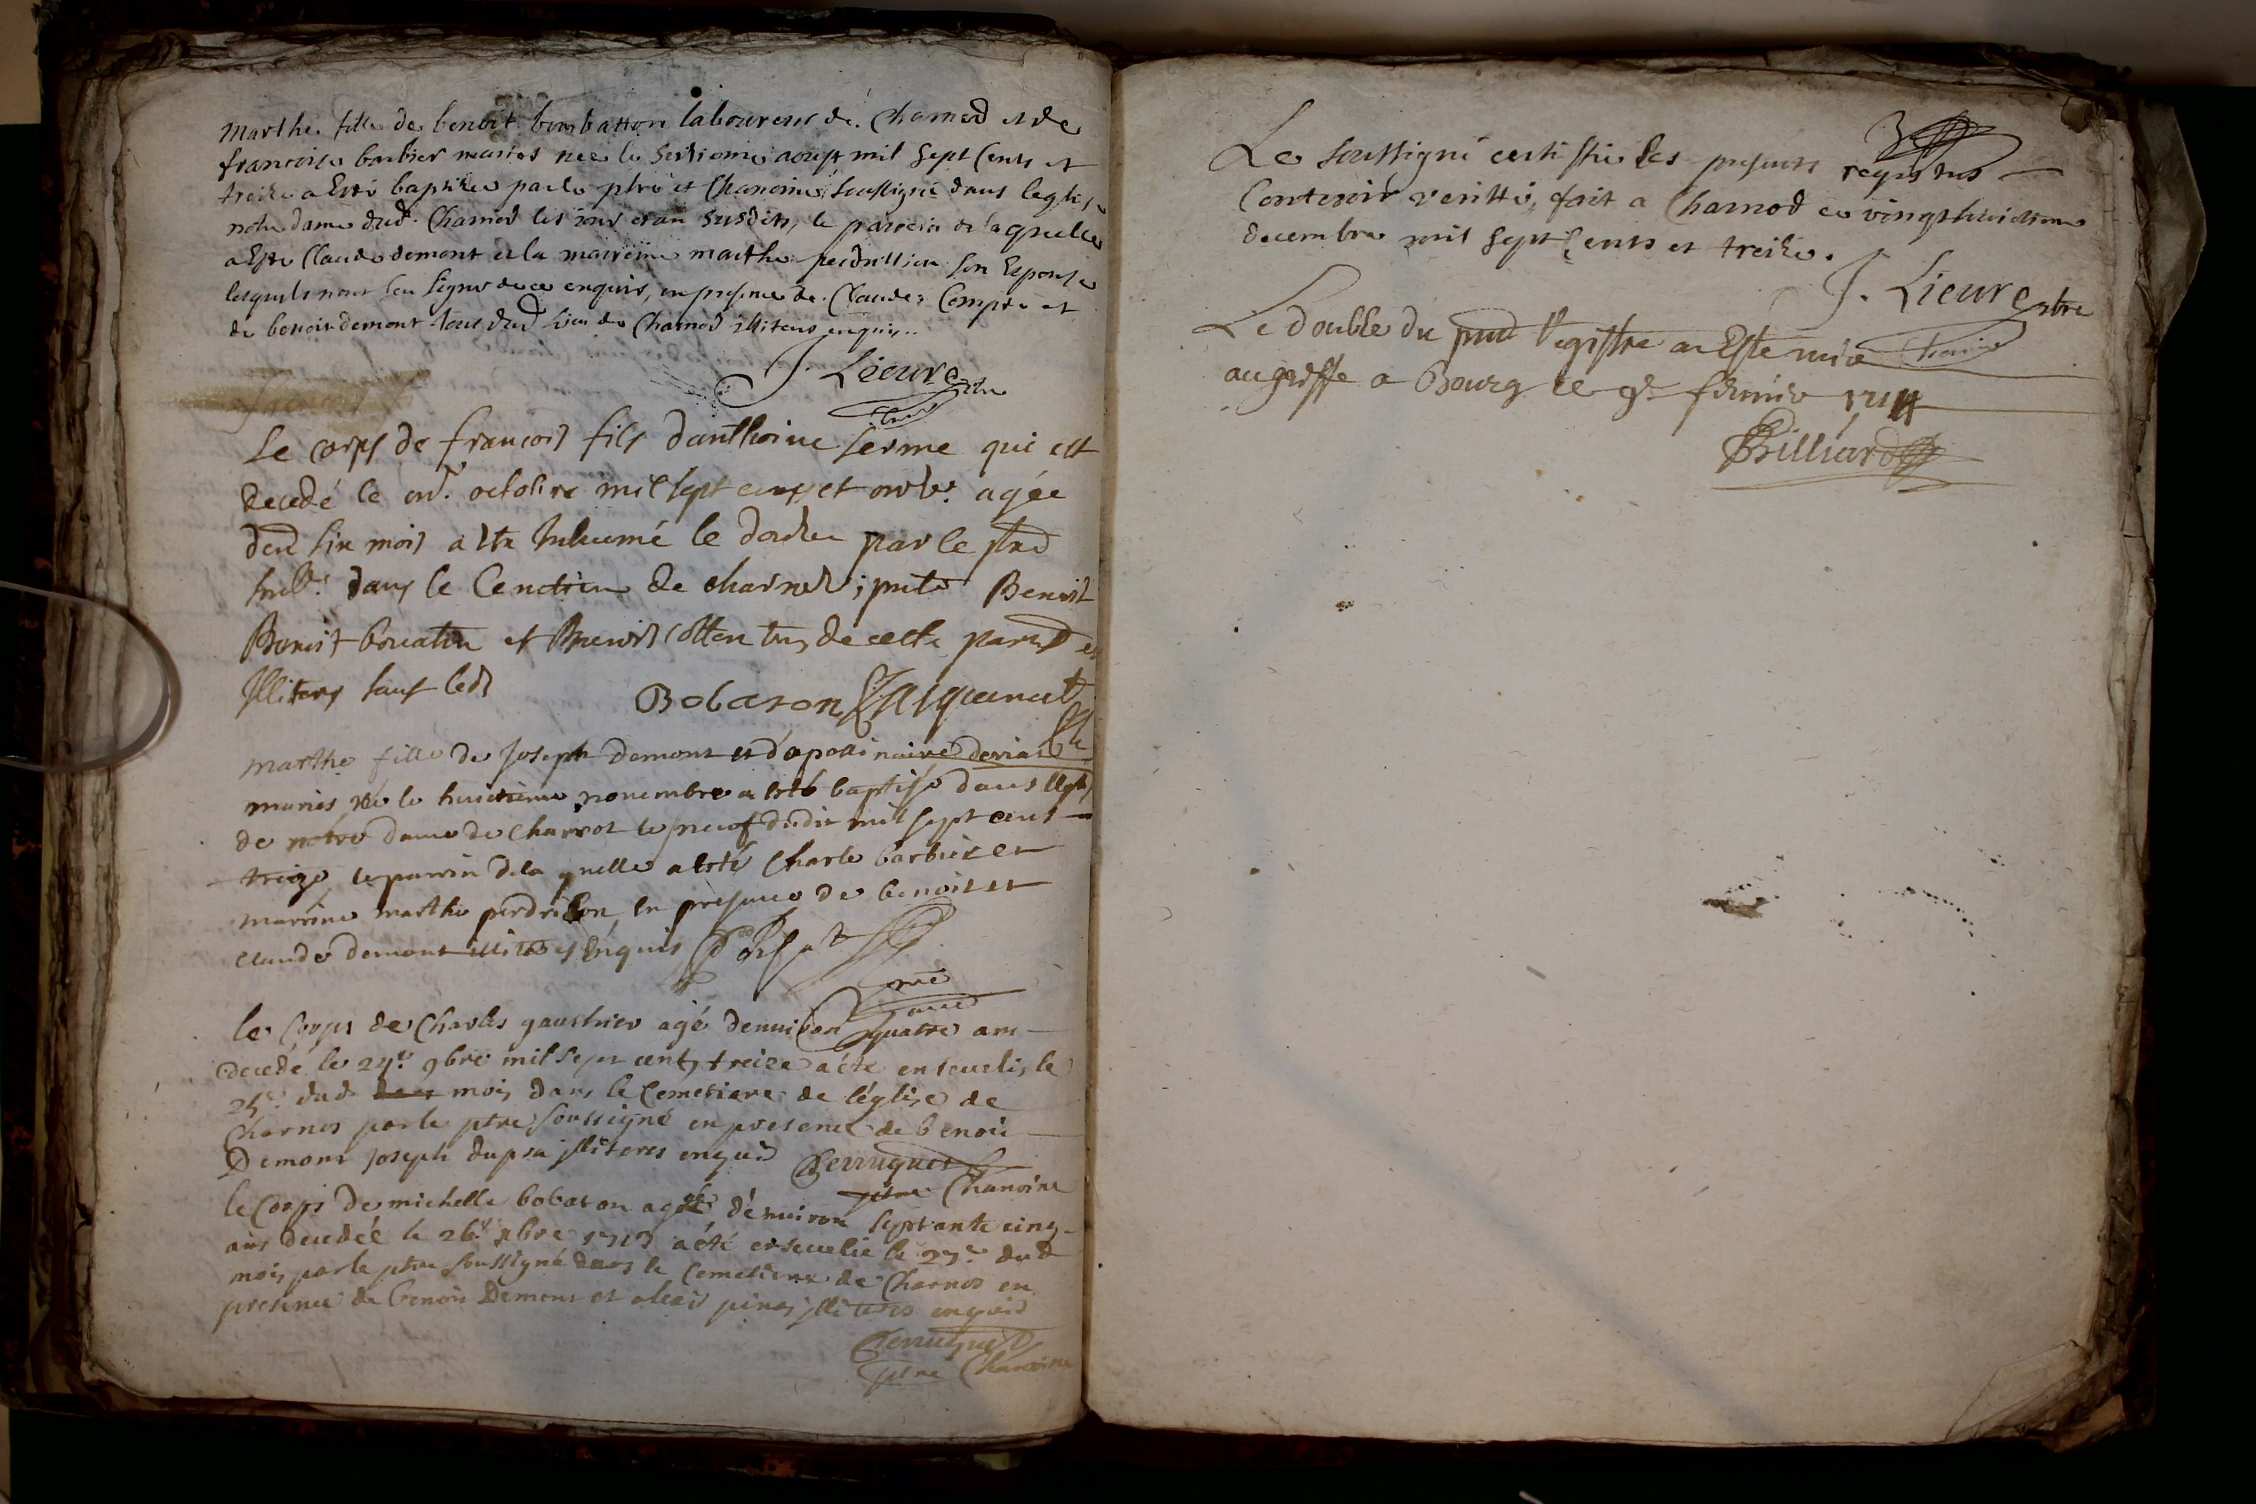 Marthe fille de benoit bombatton laboureur de Charnod et de
francoise barbier maries nee le seizieme aoust mil sept Cents et
treize a Esté baptizée par le ptre et Chanoine soussigné dans leglise
notre dame dud. Charnod les jour et an susdits, le parrein de laquelle
a Este Claude demont et la marreine marthe perdrillion son Espouse
lesquels nont sceu signer de ce enquis, en presence de Claude Compte et
de benoit demont tous dud. lieu de Charnod illiteres enquis
J. Lieure ptre
Le corps de francois fils danthoine serme qui est
decedé le onz. octobre mil sept cents et onze. agée
de six mois a ete Inhumé le douze par le
dans le Cemetiere de charnod; Benoist
Benoist bouaton et de cette
Illiteres sauf led
Bobaton
marthe fille de Joseph Demont et d'apollinaire
mariés née le huictieme novembre a esté baptisé dans leglise
de notre dame de Charnot le neuf dudit mil sept cens
treize, le parrin de la quelle a esté Charle barbier et
marrine marthe perdrilion, en presence de benoit et
claude demont illiteres enquis
le Corps de Charles gauthier agé denuiron quatre ans
decedé le 24e. 9bre mil sept cents treize a été enseueli, le
25e. dud. mois dans le Cemetiere de léglise de
Charnos par le ptre soussigné en presence de benoit
Demont joseph dupra illiteres enquis Perruquet
ptre Chanoine
le Corps de michelle bobaton agée d'enuiron septante cinq
ans decedée le 26e. 1713 a été enseuelie le 27e. dud
mois par le ptre soussigné dans le Cemetiere de Charnos en
presence de benoit Demont et illiteres enquis
Perruquet
ptre Chanoine
Le soussigné certiffie les presents registres
Contenir veritté, fait a Charnod ce vingthuictieme
decembre mil sept Cents et treize.
J. Lieure ptre
Le double du pnt Registre a Este mis
au greffe a Bourg le 9e. feurier 1714
Billiard